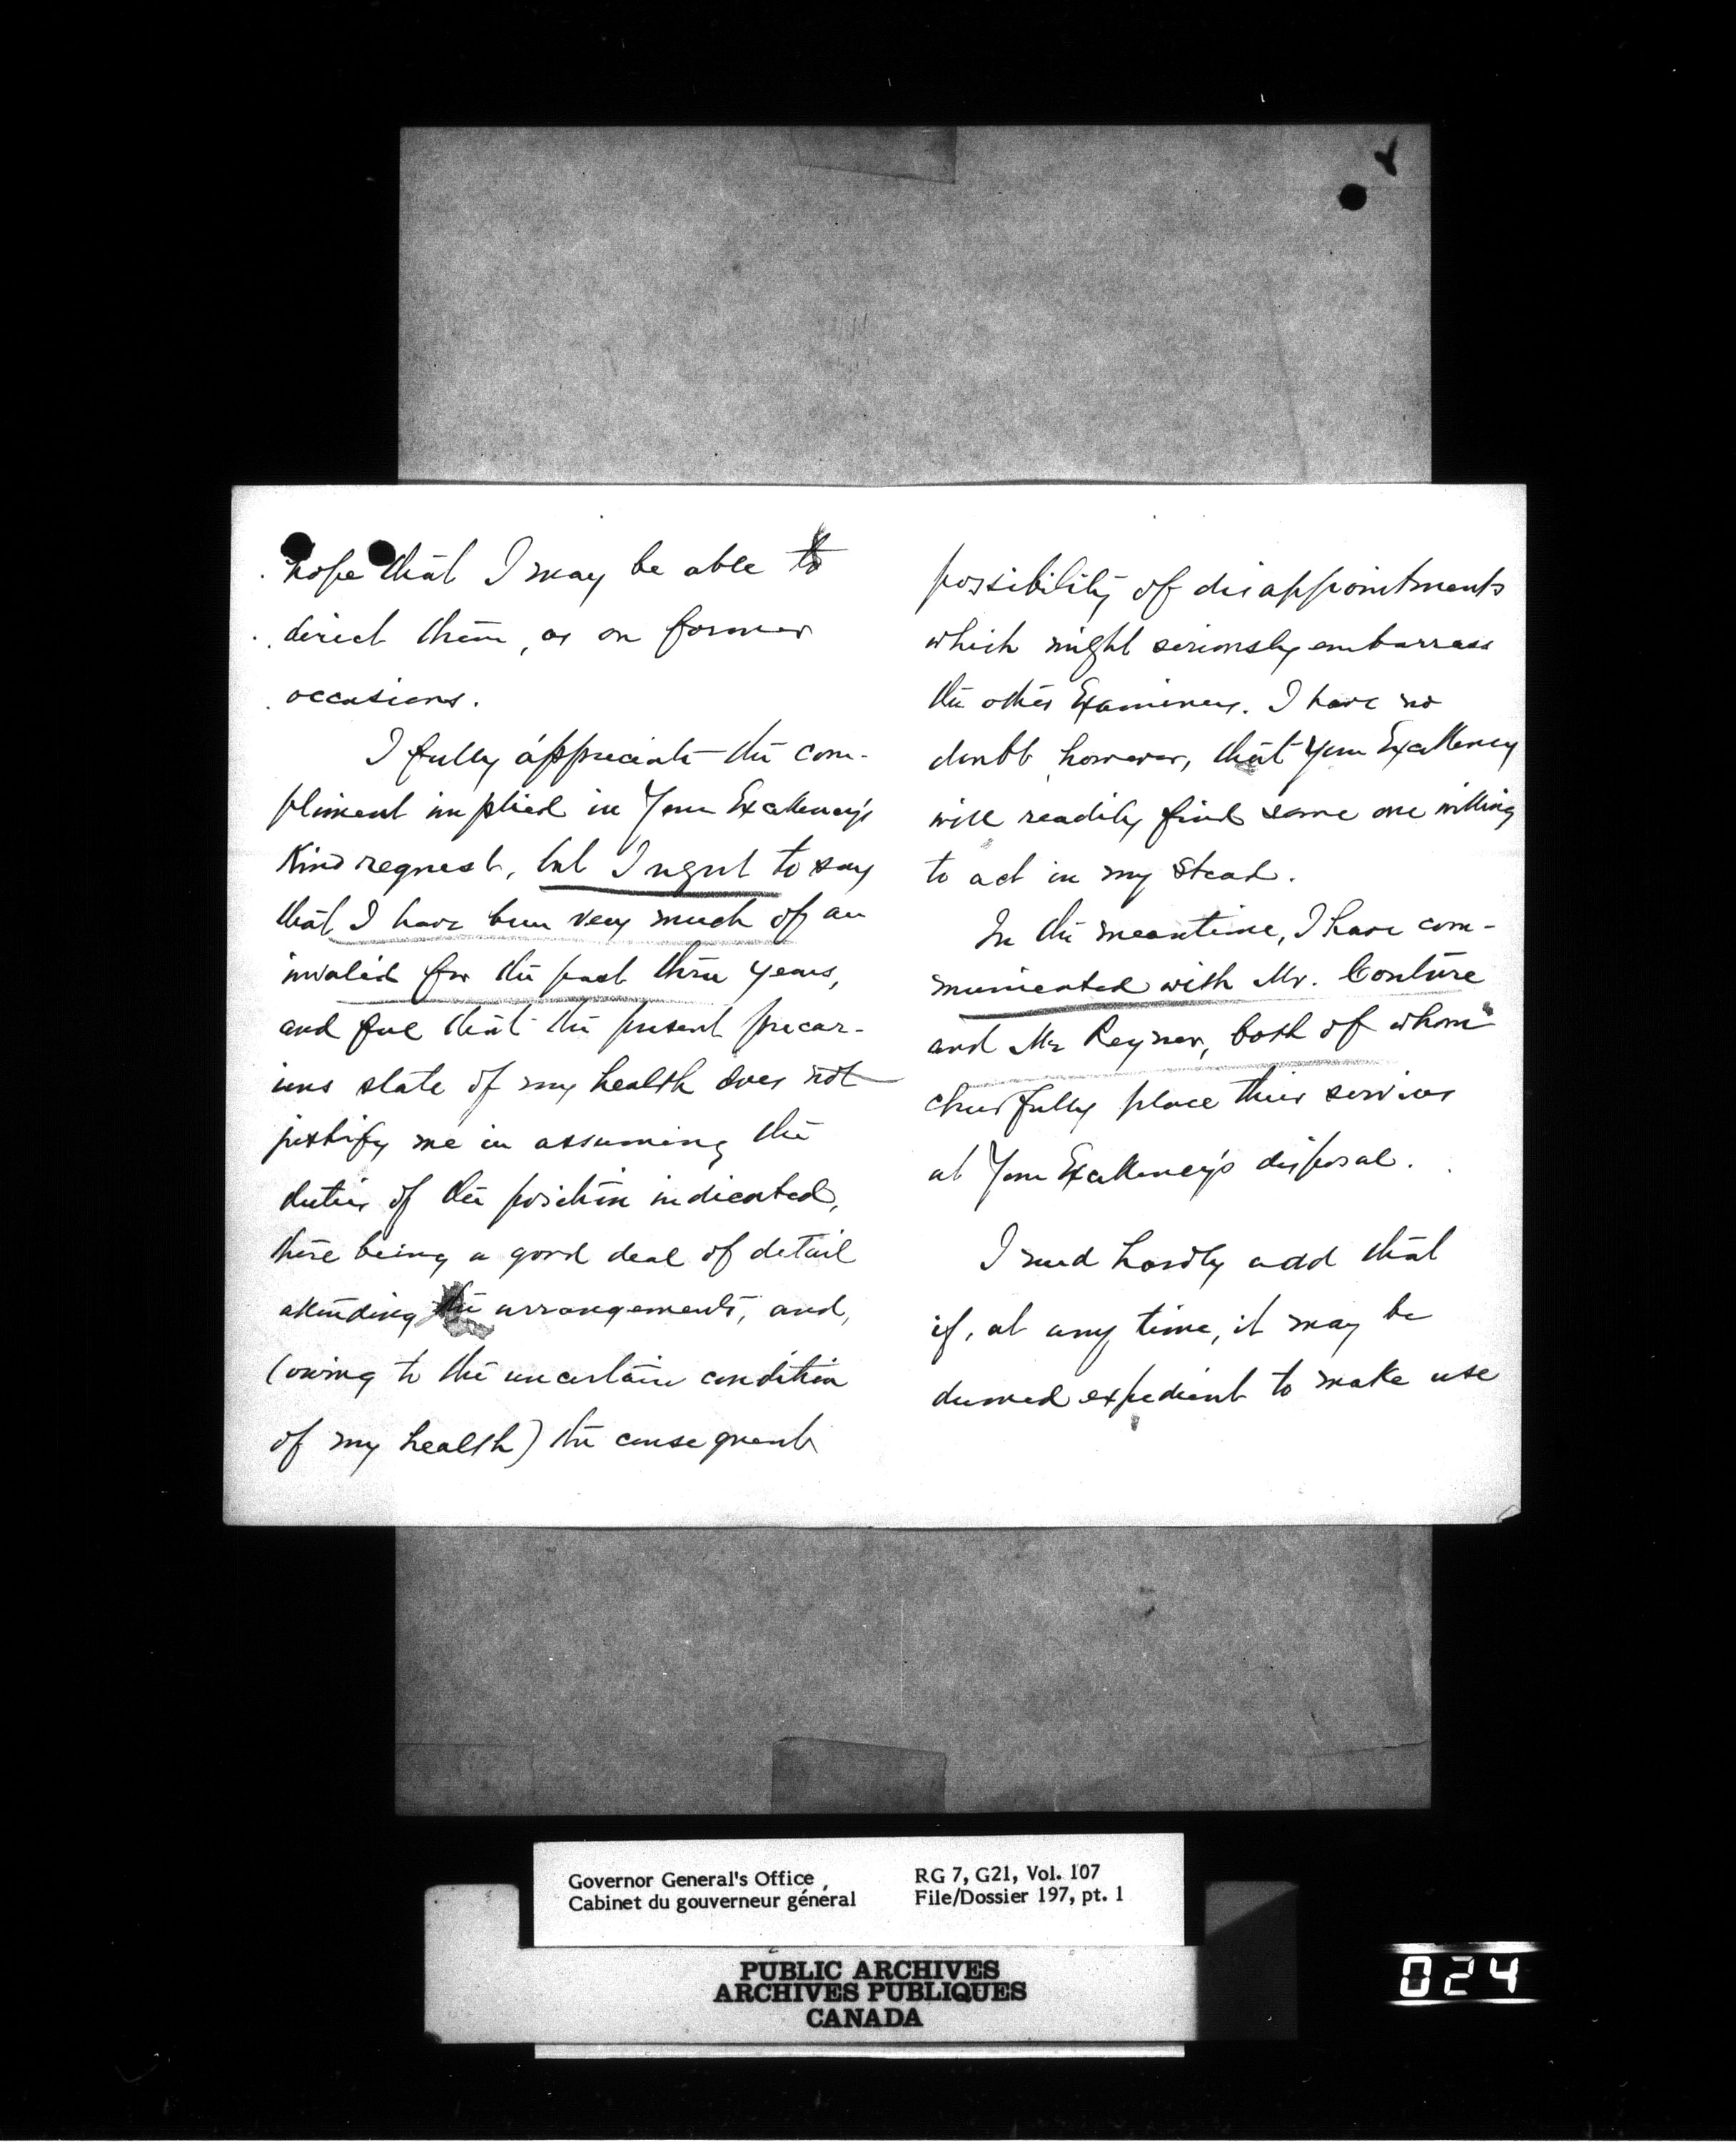 hope that I may be able to
direct them, as on former
occasions.
I fully appreciate the com-
pliment implied in Your Excellency's
kind request, but I regret to say
that I have been very much of an
invalid for the past three years,
and feel that the present precar-
ious state of my health does not
justify me in assuming the
duties of the position indicated,
there being a good deal of detail
attending the arrangements, and,
(owing to the uncertain condition
of my health) the consequent
possibility of disappointments
which might seriously embarrass
the other Examiners. I have no
doubt however, that Your Excellency
will readily find some one willing
to act in my stead.
In the meantime, I have com-
municated with Mr. Couture
and Mr Reyner, both of whom
cheerfully place their services
at Your Excellency's disposal.
I need hardly add that
if, at any time, it may be
deemed expedient to make use
Governor General's Office
Cabinet du gouverneur général
RG 7, G21, Vol. 107
File/Dossier 197, pt. 1
PUBLIC ARCHIVES
ARCHIVES PUBLIQUES
CANADA
024